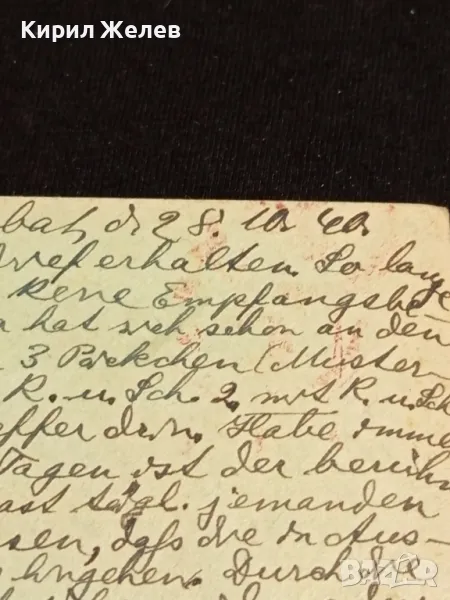 Кирил Желев
bat, d. 28. 10. 40.
Brief erhalten. So lange
keine Empfangsbe
hat sich schon an den
3 Päckchen (Muster-
R. u. Sch. 2. mit R. u. Sch
effer drin. Habe imme
Tagen ist der berühm
ast tägl. jemanden
sen, daß die in Aus-
hingehen. Durch die
BAZAR.BG